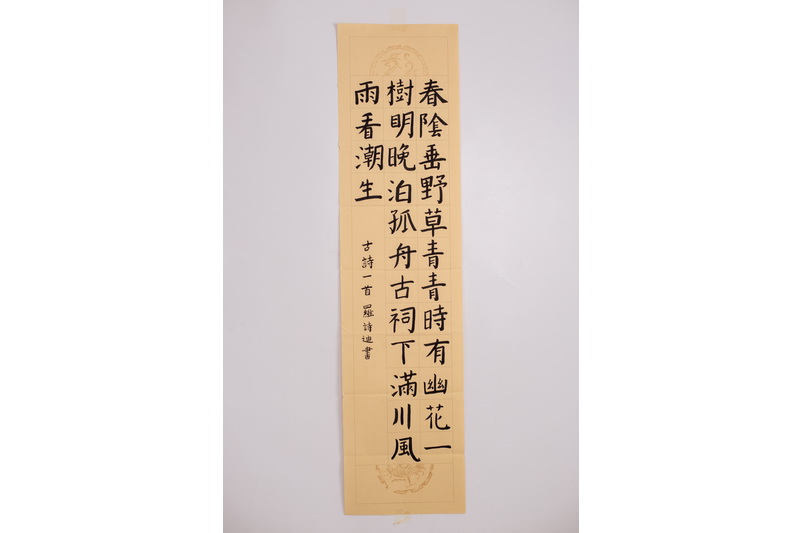 春陰垂野草青青時有幽花一
樹明晚泊孤舟古祠下滿川風
雨看潮生
古詩一首 羅詩迪書